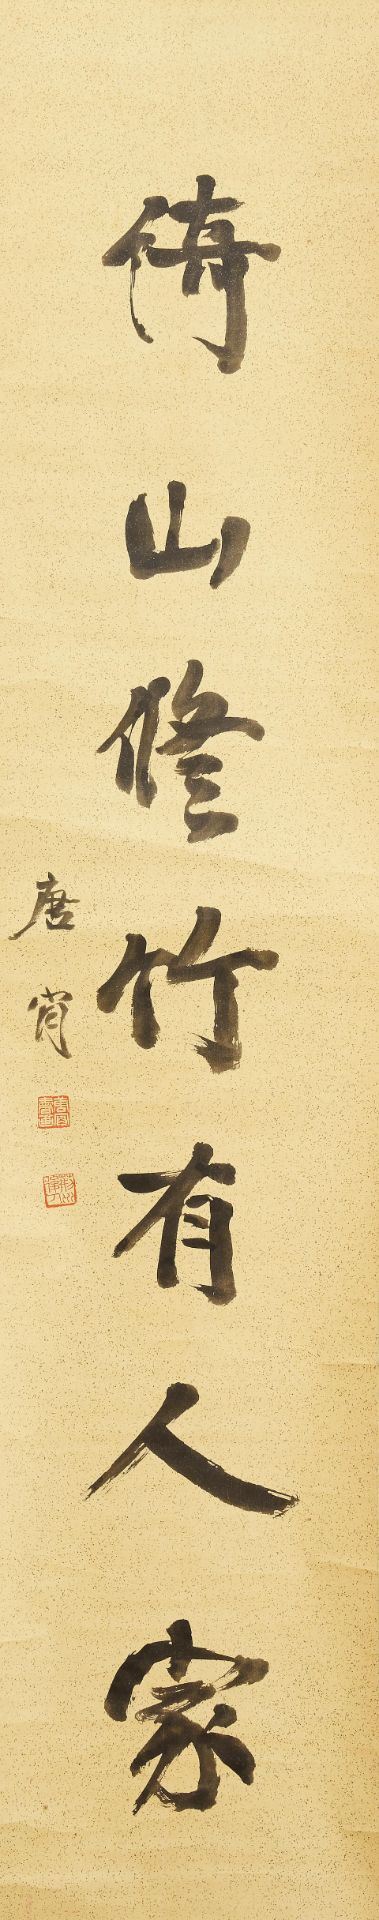 倚山修竹有人家
唐肯